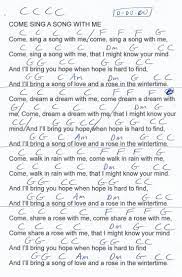 C C C C
COME SING A SONG WITH ME
Come, sing a song with me, come, sing a song with me,
C C C C Dm G C C
Come, sing a song with me, that I might know your mind
G G C C G G C C
And I'll bring you hope when hope is hard to find,
G G C Am Dm G C C
And I'll bring a song of love and a rose in the wintertime.
Come, dream a dream with me, come, dream a dream with
me, Come, dream a dream with me, that I might know your
mind/And I'll bring you hope, when hope is hard to find,
G G C Am Dm G C C
And I'll bring a song of love and a rose in the wintertime.
Come, walk in rain with me, come, walk in rain with me,
Come, walk in rain with me, that I might know your mind
G G C C G G C C
And I'll bring you hope when hope is hard to find,
G G C Am Dm G C C
And I'll bring a song of love and a rose in the wintertime.
Come share a rose with me, come share a rose with me,
Come share a rose with me, that I might know your mind
G G C C G G C C
And I'll bring you hope when hope is hard to find
G G C Am Dm G C C
And I'll bring a song of love and a rose in the wintertime.